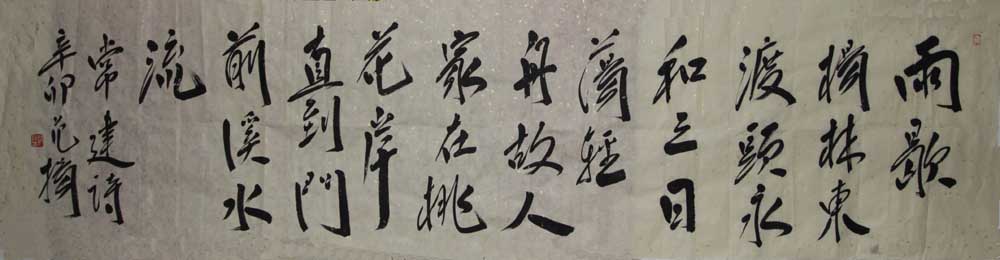 雨歇
楊林東
渡頭永
和三日
蕩輕
舟故人
家在桃
花岸
直到門
前溪水
流
常建詩
辛卯范揚